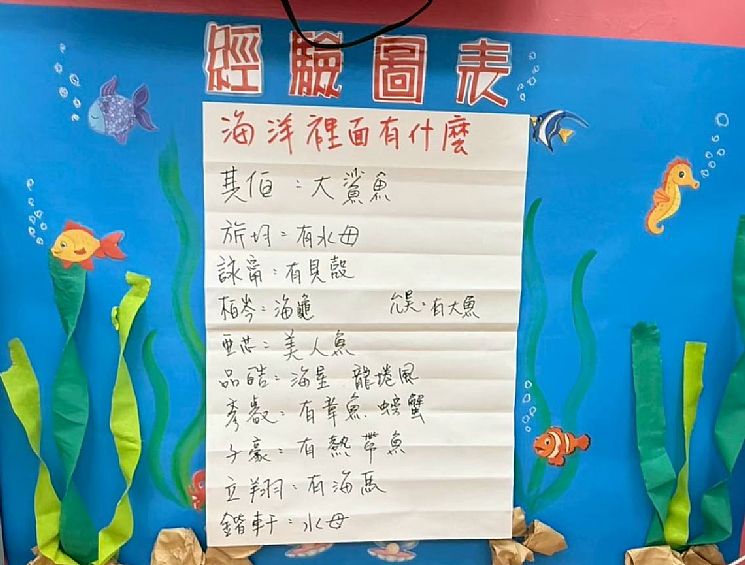 經驗圖表
海洋裡面有什麼
其佰：大鯊魚
旂均：有水母
詠甯：有貝殼
柏岑：海龜 允昊：有大魚
亞芯：美人魚
品皓：海星 龍捲風
彥叡：有章魚 螃蟹
子豪：有熱帶魚
立翔：有海馬
鍇軒：水母